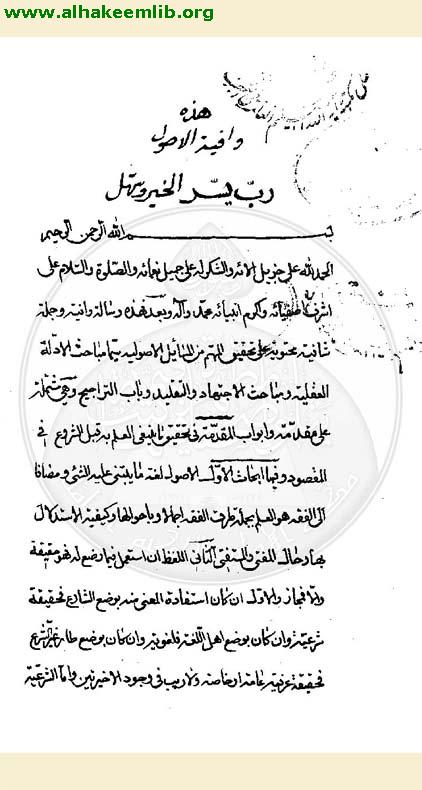 www.alhakeemlib.org
هذه
وافية الاصول
ربّ يسّر الخير وسهل
بسم الله الرحمن الرحيم
الحمد لله على جزيل آلائه والشكر له على جميل نعمائه والصلوة والسلام على
اشرف اصفيائه واكرم انبيائه محمد وآله وبعد فهذه رسالة وافية وجملة
شافية محتوية على تحقيق المهم من المسائل الاصولية سيما مباحث الادلة
العقلية ومباحث الاجتهاد والتقليد وباب التراجيح وهي مشتملة
على مقدمة وابواب المقدمة في تحقيق ما ينبغى العلم به قبل الشروع في
المقصود وفيها ابحاث الاول الاصول لغة ما يبتنى عليه الشئ ومضافا
الى الفقه هو العلم بجملة طرق الفقه اجمالا وباحوالها وكيفية الاستدلال
بها وحال المفتى والمستفتى الثاني اللفظ ان استعمل فيما وضع له فهو حقيقة
والا فمجاز والاول ان كان استفادة المعنى منه بوضع الشارع فحقيقة
شرعية وان كان بوضع اهل اللغة فلغوية وان كان بوضع طار غير الشرع
فحقيقة عرفية عامة او خاصة ولا ريب في وجود الاخيرتين واما الشرعية